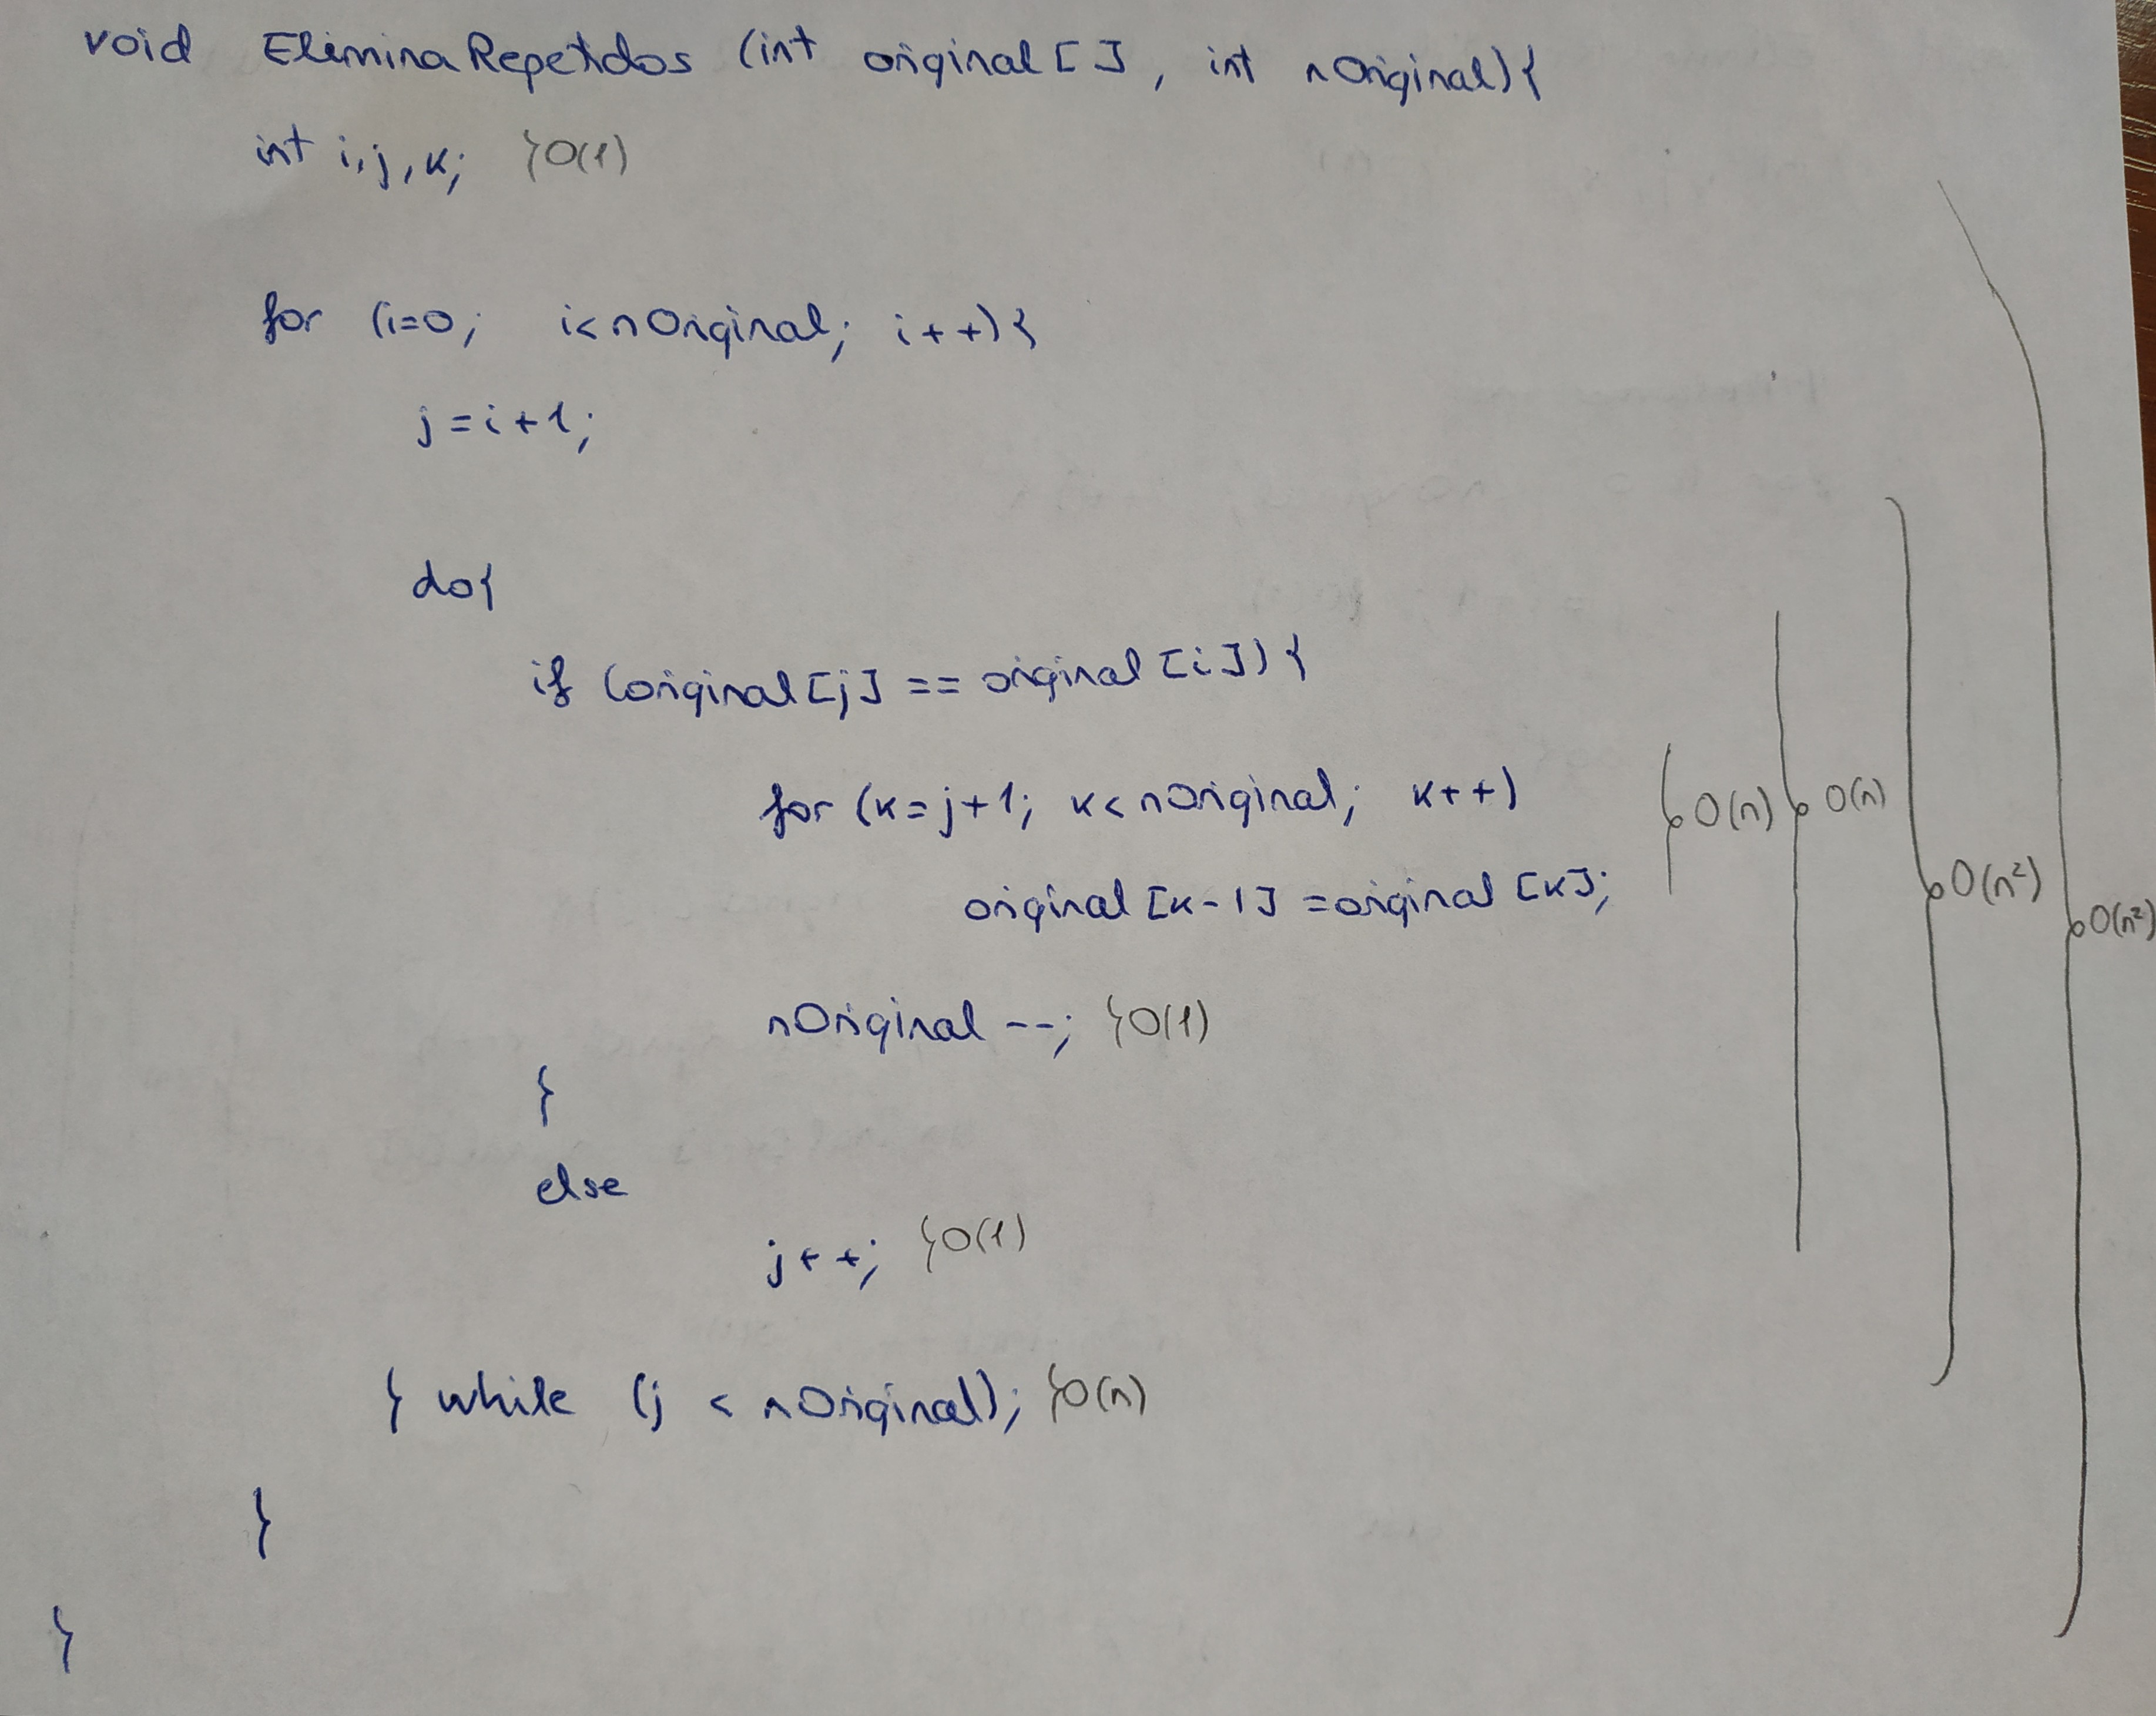 void EliminaRepetidos (int original[], int nOriginal){
int i,j,k; }O(1)
for (i=0; i<nOriginal; i++){
j=i+1;
do{
if (original[j] == original[i]){
for (k=j+1; k<nOriginal; k++)
original[k-1] =original[k]; }O(n) }O(n) }O(n²) }O(n²)
nOriginal--; }O(1)
}
else
j++; }O(1)
} while (j < nOriginal); }O(n)
}
}